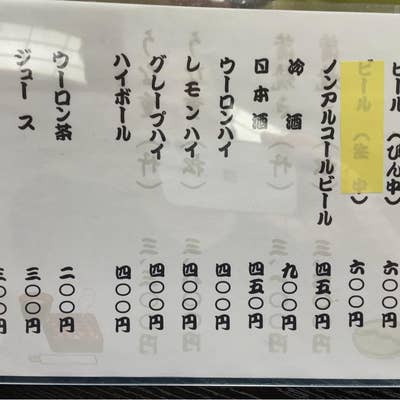 ビール（びん中） 六〇〇円
ビール（生 中） 六〇〇円
ノンアルコールビール 四五〇円
冷 酒 九〇〇円
日本酒 四五〇円
ウーロンハイ 四〇〇円
レモンハイ 四〇〇円
グレープハイ 四〇〇円
ハイボール 四〇〇円
ウーロン茶 二〇〇円
ジュース 三〇〇円
三〇〇円